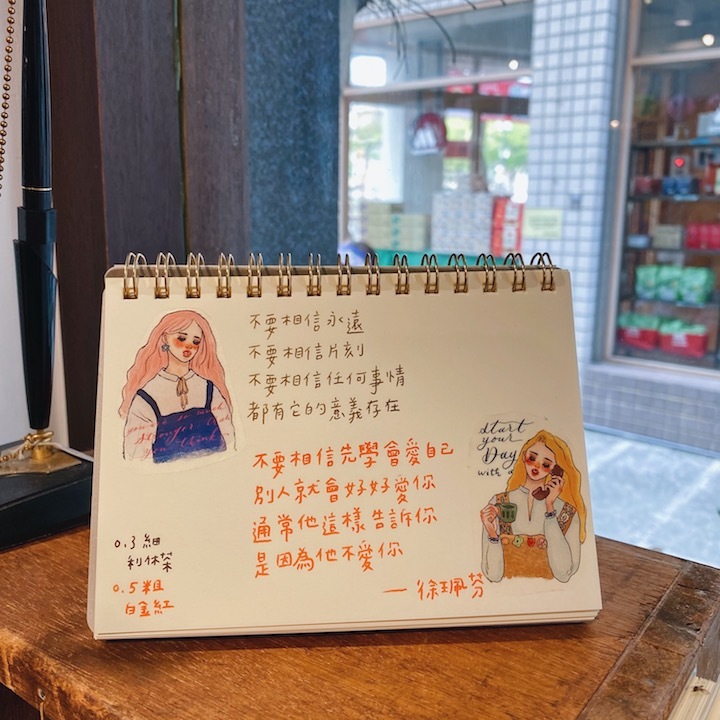 不要相信永遠
不要相信片刻
不要相信任何事情
都有它的意義存在
不要相信先學會愛自己
別人就會好好愛你
通常他這樣告訴你
是因為他不愛你
— 徐珮芬
0.3 細
利休茶
0.5 粗
白金紅
start
your
Day
with a